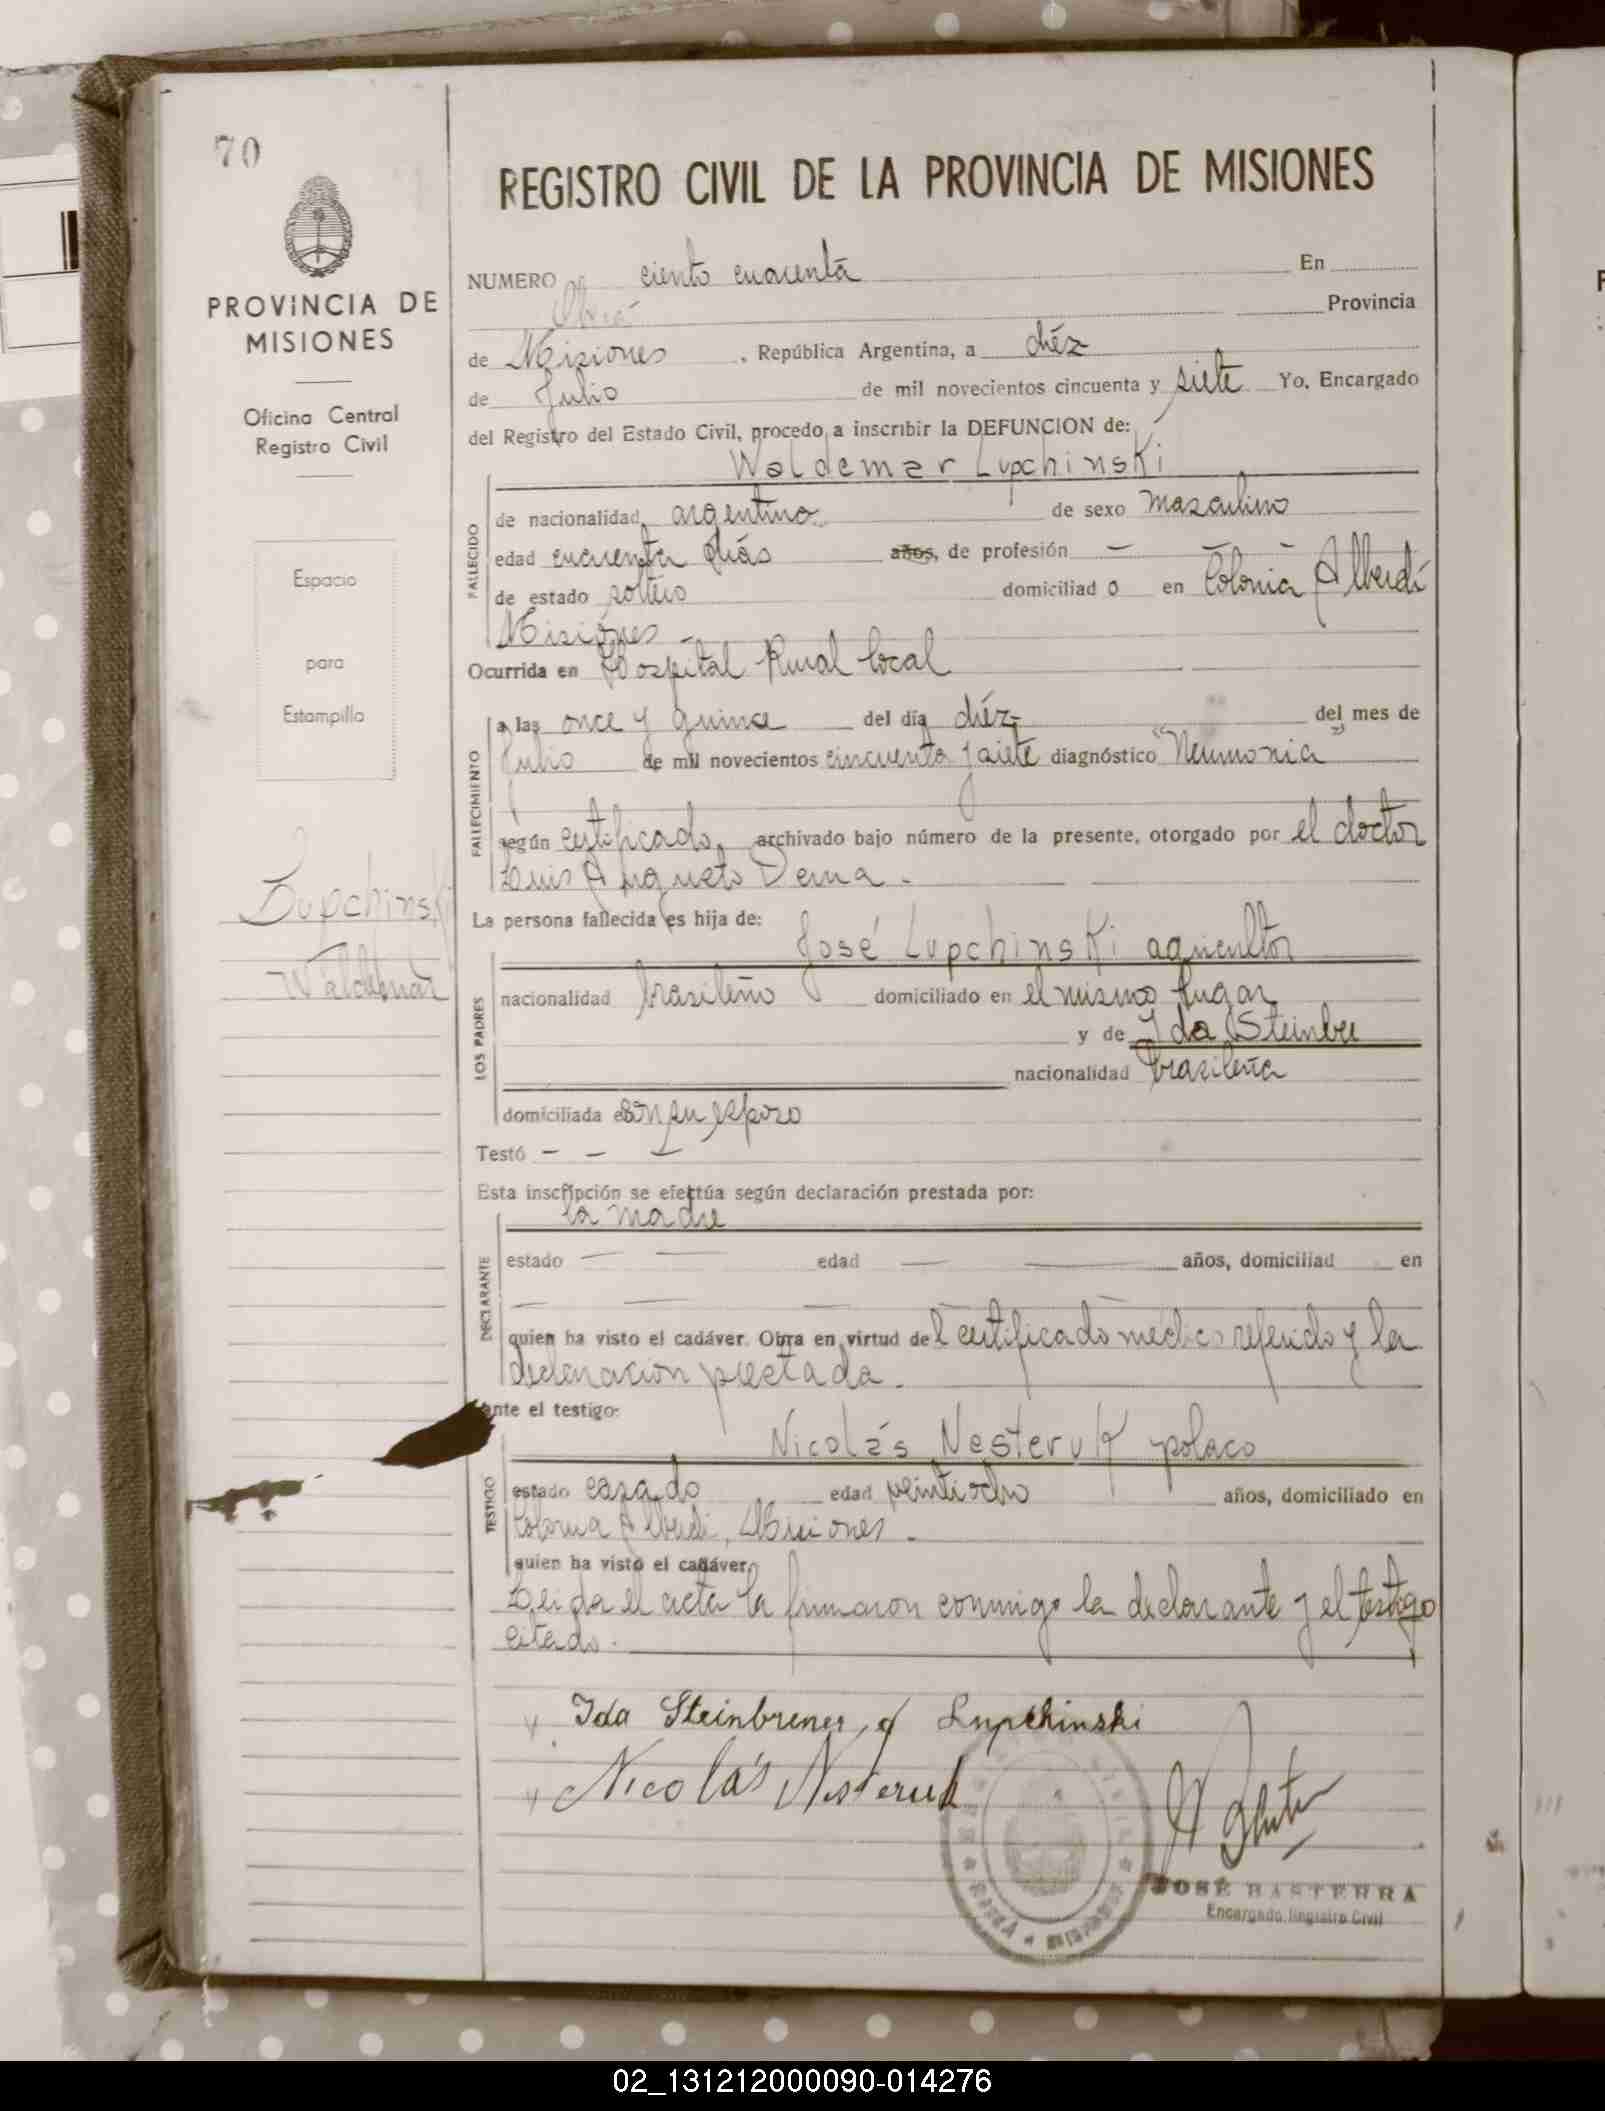 70
PROVINCIA DE
MISIONES
Oficina Central
Registro Civil
Espacio
para
Estampilla
Lupchinski
Waldemar
REGISTRO CIVIL DE LA PROVINCIA DE MISIONES
NUMERO ciento cuarenta En
Oberá Provincia
de Misiones , República Argentina, a diéz
de Julio de mil novecientos cincuenta y siete Yo, Encargado
del Registro del Estado Civil, procedo a inscribir la DEFUNCION de:
Waldemar Lupchinski
FALLECIDO
de nacionalidad argentino de sexo masculino
edad cuarenta días años, de profesión — — —
de estado soltero domiciliad o en Colonia Alberdi
Misiones —
Ocurrida en Hospital Rural local
FALLECIMIENTO
a las once y quince del día diéz del mes de
Julio de mil novecientos cincuenta y siete diagnóstico "Neumonia"
según certificado archivado bajo número de la presente, otorgado por el doctor
Luis Augusto Derna.-
La persona fallecida es hija de:
José Lupchinski agricultor
LOS PADRES
nacionalidad brasileño domiciliado en el mismo lugar
y de Ida Steinbre
nacionalidad brasileña
domiciliada con su esposo
Testó — — —
Esta inscripción se efectúa según declaración prestada por:
la madre
DECLARANTE
estado — — edad — — años, domiciliad en
— — — —
quien ha visto el cadáver. Obra en virtud del certificado médico referido y la
declaración prestada.
ante el testigo:
Nicolás Nesteruk polaco
TESTIGO
estado casado edad veintiocho años, domiciliado en
Colonia Alberdi, Misiones.-
quien ha visto el cadáver.
Leida el acta la firmaron conmigo la declarante y el testigo
citado.
Ida Steinbrener d Lupchinski
Nicolás Nesteruk
JOSÉ BASTERRA
Encargado Registro Civil
02_131212000090-014276